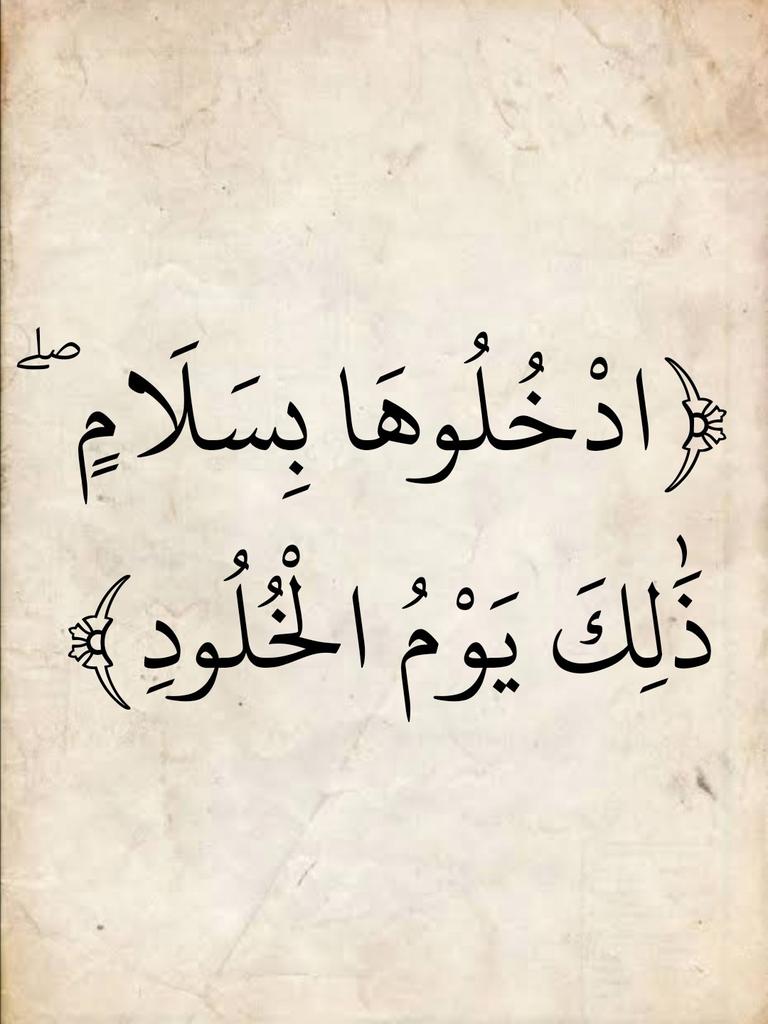 ﴿ ادْخُلُوهَا بِسَلَامٍ ۖ
ذَٰلِكَ يَوْمُ الْخُلُودِ ﴾